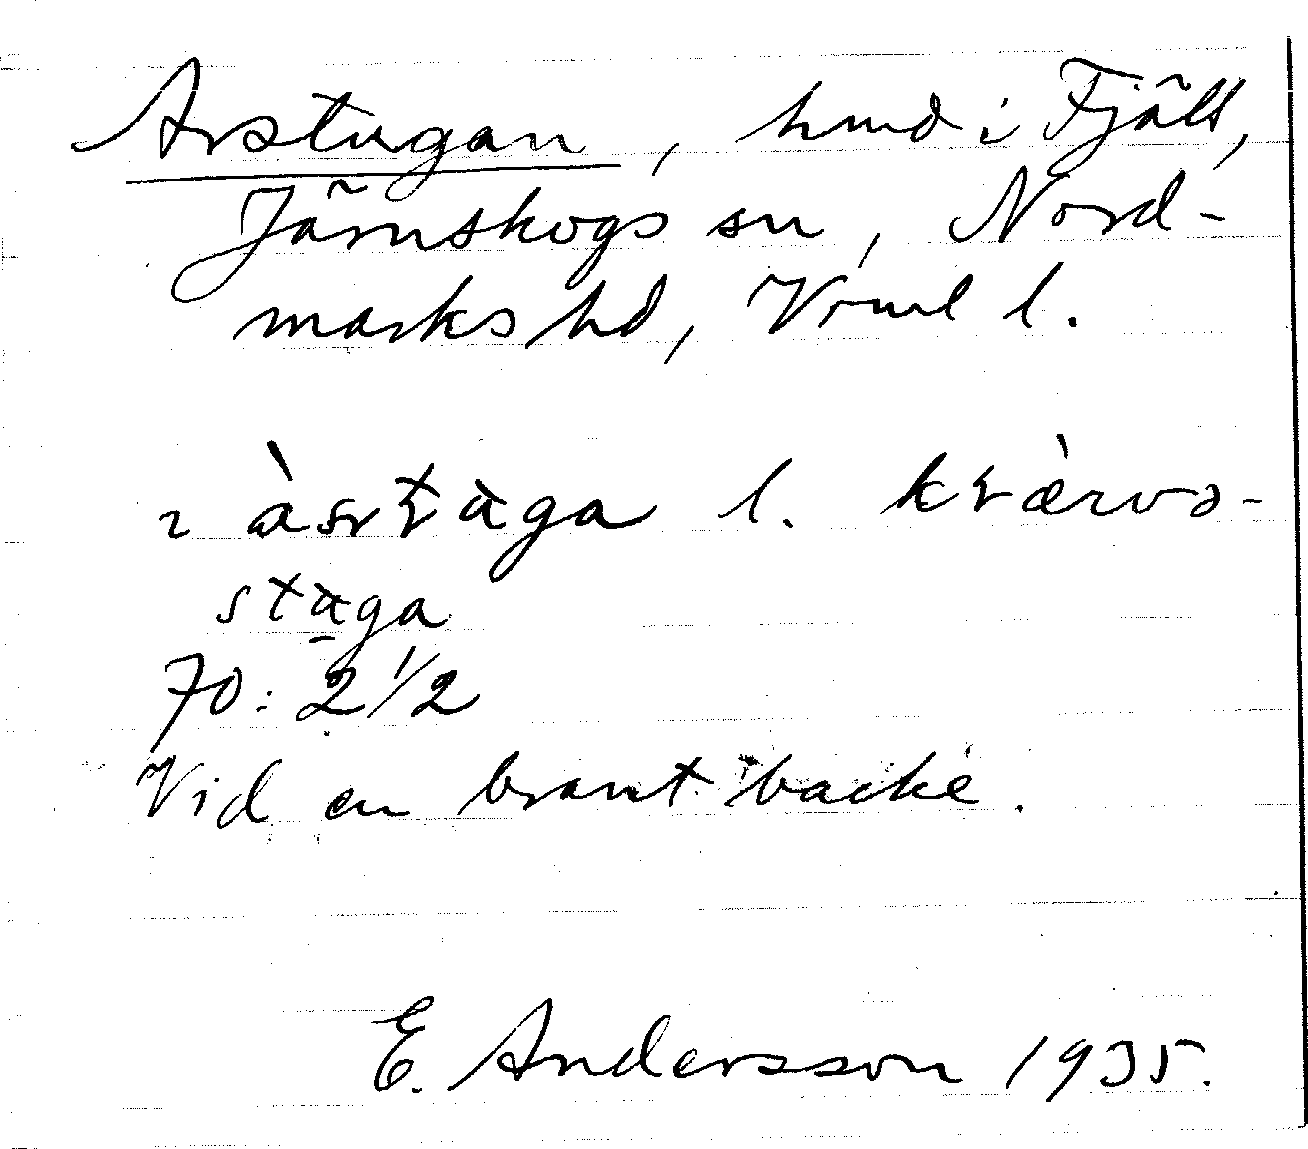 Arstugan, hmd i Fjäll,
Järnskogs sn, Nord-
marks hd, Vrml l.
ɿ àsrtàga l. ktàrvə-
stàga
70: 2 1/2
Vid en brant backe.
E. Andersson 1935.